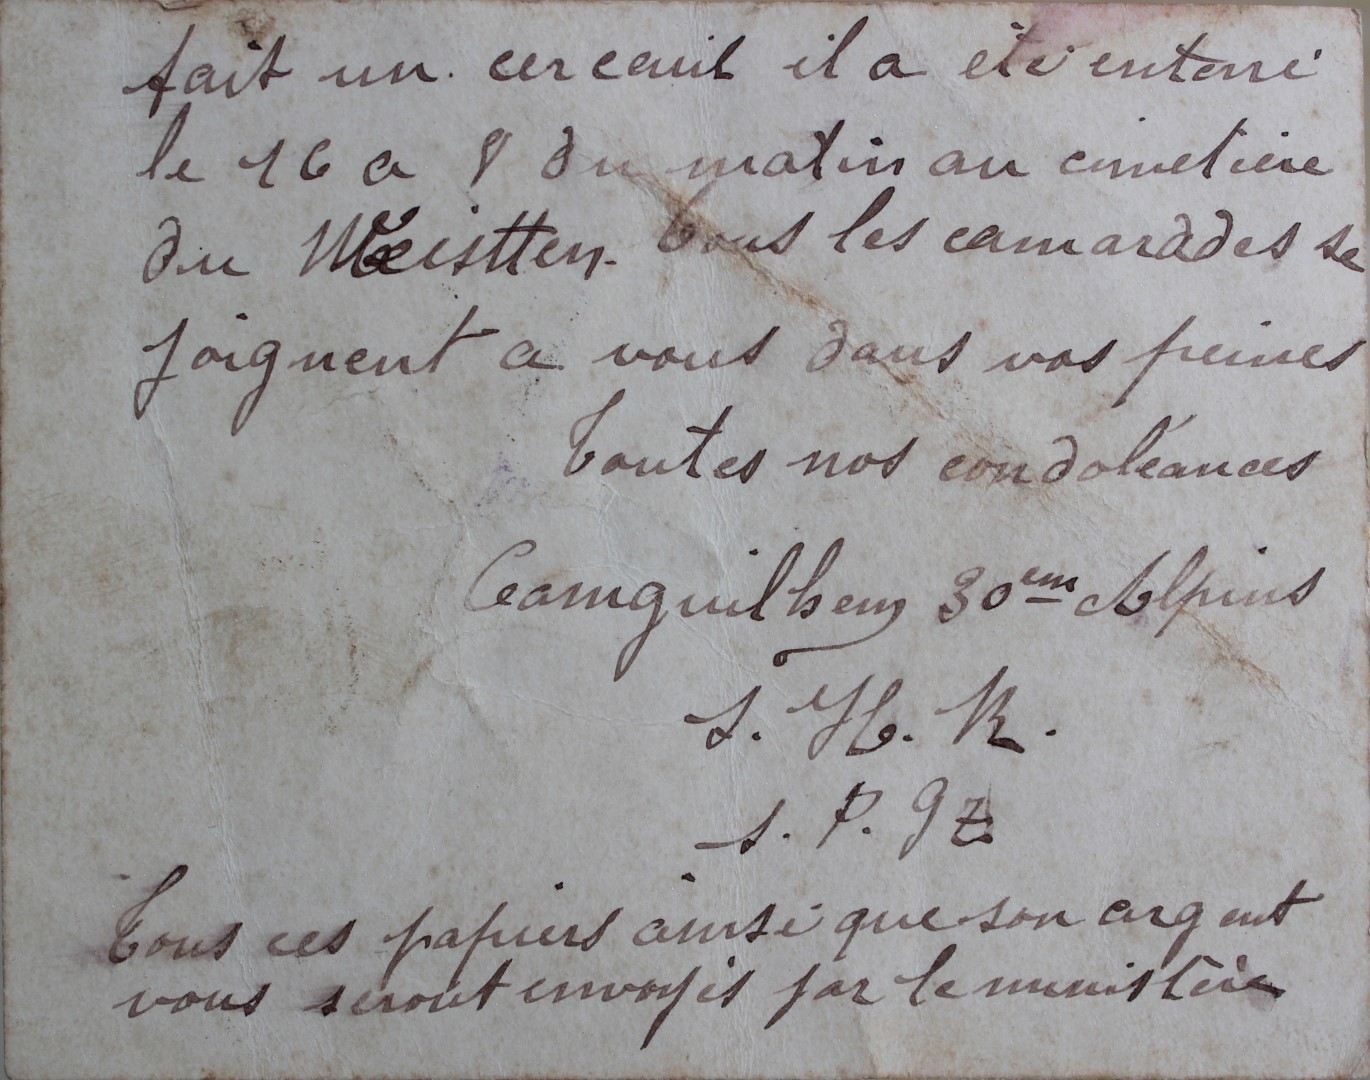 fait un cercauil il a été enterré
le 16 a 8 du matin au cimetiere
du Weistten. Tous les camarades se
joignent a vous dans vos peines
Toutes nos condoléances
Camguilhem 30em Alpins
S. H. R.
S. P. 92
Tous ces papiers ainsi que son argent
vous seront envoyés par le ministère